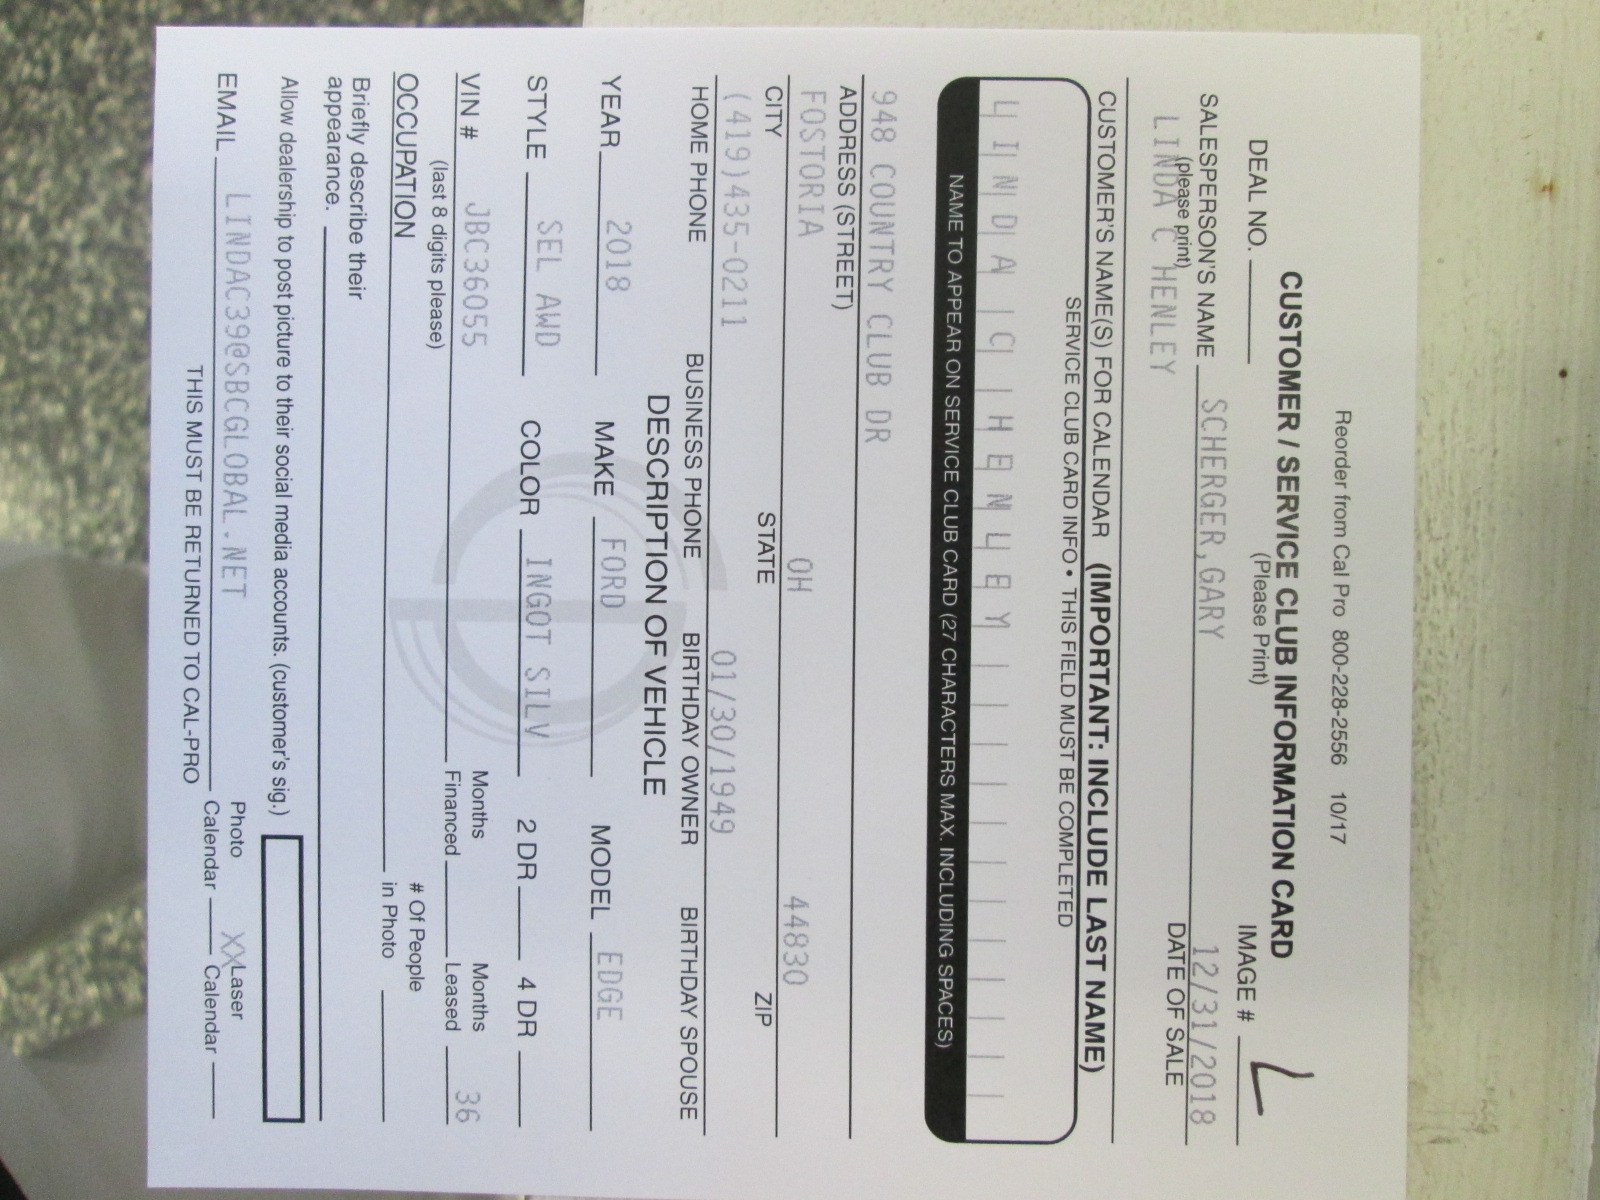 Reorder from Cal Pro 800-228-2556 10/17
CUSTOMER / SERVICE CLUB INFORMATION CARD
(Please Print)
DEAL NO. IMAGE #
SALESPERSON'S NAME SCHERGER,GARY 12/31/2018
(please print) DATE OF SALE
LINDA C HENLEY
CUSTOMER'S NAME(S) FOR CALENDAR (IMPORTANT: INCLUDE LAST NAME)
SERVICE CLUB CARD INFO • THIS FIELD MUST BE COMPLETED
LINDA C HENLEY
NAME TO APPEAR ON SERVICE CLUB CARD (27 CHARACTERS MAX. INCLUDING SPACES)
948 COUNTRY CLUB DR
ADDRESS (STREET)
FOSTORIA OH 44830
CITY STATE ZIP
(419)435-0211 01/30/1949
HOME PHONE BUSINESS PHONE BIRTHDAY OWNER BIRTHDAY SPOUSE
DESCRIPTION OF VEHICLE
YEAR 2018 MAKE FORD MODEL EDGE
STYLE SEL AWD COLOR INGOT SILV 2 DR 4 DR
VIN # JBC36055 Months Financed Months Leased 36
(last 8 digits please)
OCCUPATION # Of People in Photo
Briefly describe their
appearance.
Allow dealership to post picture to their social media accounts. (customer's sig.)
EMAIL LINDAC39@SBCGLOBAL.NET Photo Calendar XX Laser Calendar
THIS MUST BE RETURNED TO CAL-PRO